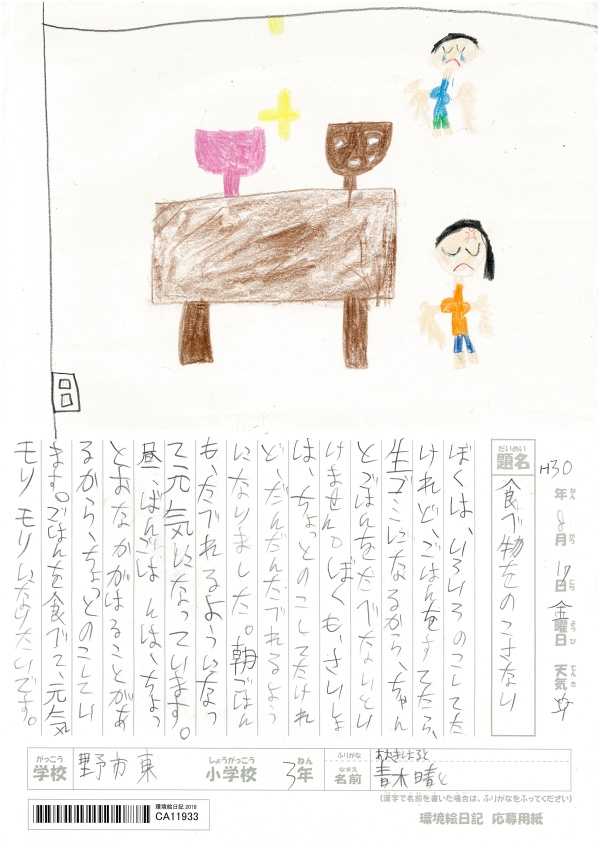 H30年8月17日金曜日 天気
ねん がつ にち ようび てんき
だいめい
題名
食べ物をのこさない
ぼくは、いろいろのこしてた
けれど、ごはんをすてたら、
生ゴミになるから、ちゃん
とごはんをたべないとい
けません。ぼくも、さいしょ
は、ちょっとのこしてたけれ
ど、だんだんたべれるよう
になりました。朝ごはん
も、たべれるようになっ
て元気になっています。
昼、ばんごはんは、ちょっ
とおなかがはることがあ
るから、ちょっとのこしてい
ます。ごはんを食べて、元気
モリモリになりたいです。
がっこう しょうがっこう ねん ふりがな
学校 野市東 小学校 3年
なまえ
名前 青木晴と
(漢字で名前を書いた場合は、ふりがなをふってください)
環境絵日記 2018
CA11933
環境絵日記 応募用紙